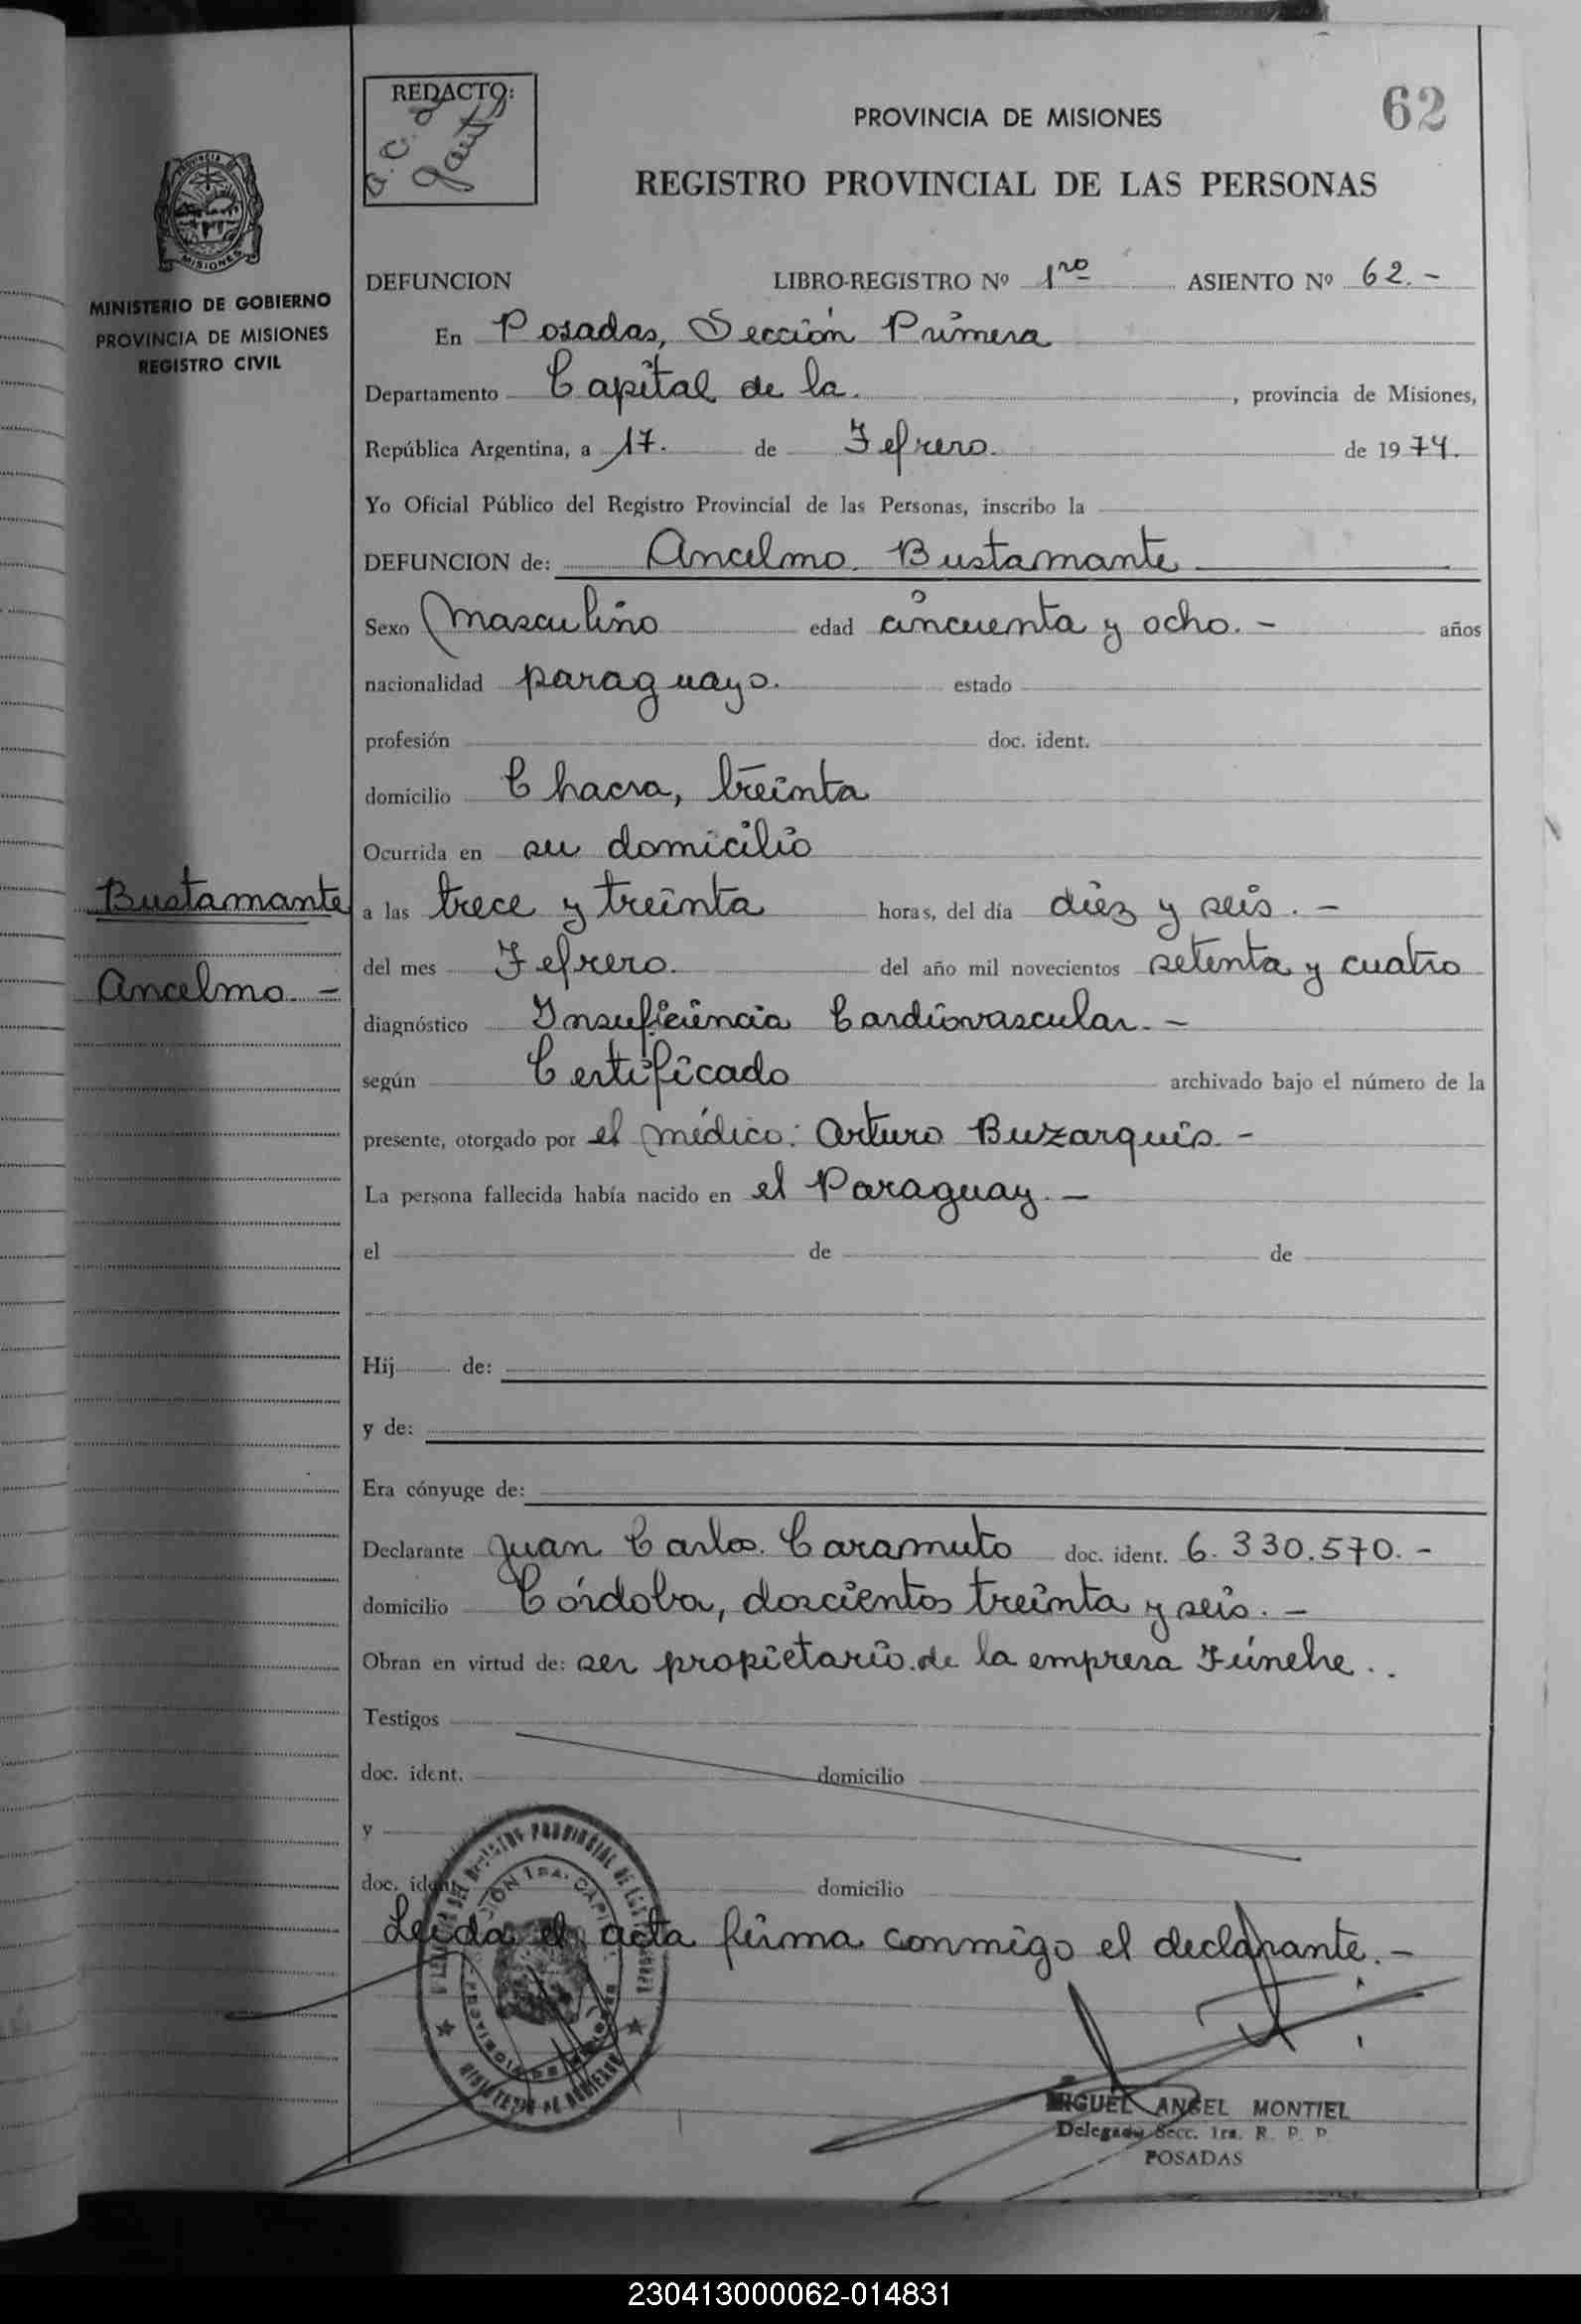 REDACTO:
PROVINCIA DE MISIONES
62
REGISTRO PROVINCIAL DE LAS PERSONAS
MISIONES
MINISTERIO DE GOBIERNO
PROVINCIA DE MISIONES
REGISTRO CIVIL
DEFUNCION LIBRO-REGISTRO Nº 1ro ASIENTO Nº 62.-
En Posadas, Sección Primera
Departamento Capital de la. , provincia de Misiones,
República Argentina, a 17. de Febrero. de 1974.
Yo Oficial Público del Registro Provincial de las Personas, inscribo la
DEFUNCION de: Ancelmo. Bustamante
Sexo Masculino edad cincuenta y ocho.- años
nacionalidad paraguayo. estado
profesión doc. ident.
domicilio Chacra, treinta
Ocurrida en su domicilio
Bustamante
Ancelmo.-
a las trece y treinta horas, del día diez y seis.-
del mes Febrero. del año mil novecientos setenta y cuatro
diagnóstico Insuficiencia Cardiovascular.-
según Certificado archivado bajo el número de la
presente, otorgado por el médico: Arturo Buzarquis.-
La persona fallecida había nacido en el Paraguay.-
el de de
Hij de:
y de:
Era cónyuge de:
Declarante Juan Carlos. Caramuto doc. ident. 6.330.570.-
domicilio Córdoba, doscientos treinta y seis.-
Obran en virtud de: ser propietario de la empresa Fúnebre..
Testigos
doc. ident. domicilio
y
doc. ident. domicilio
Leida el acta firma conmigo el declarante.-
MIGUEL ANGEL MONTIEL
Delegado Secc. 1ra. R. P. P.
POSADAS
230413000062-014831